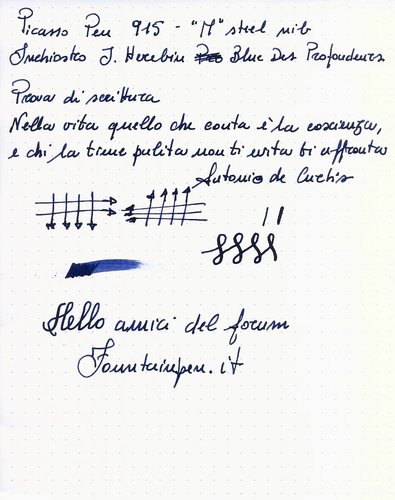 Picasso Pen 915 - "M" steel nib
Inchiostro J. Herbin Bleu Des Profondeurs
Prova di scrittura
Nella vita quello che conta è la coscienza,
e chi la tiene pulita non ti evita ti affronta
Antonio de Curtis
Hello amici del forum
Fountainpen.it